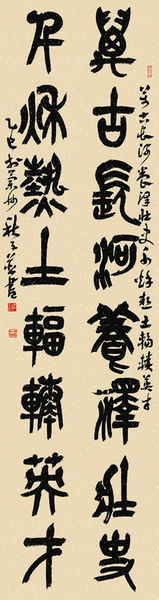 萬古長河養澤壯史
千秋熱土輻輳英才
万古長河養澤壯史千秋熱土輻輳英才
乙巳於蘭州秋子書